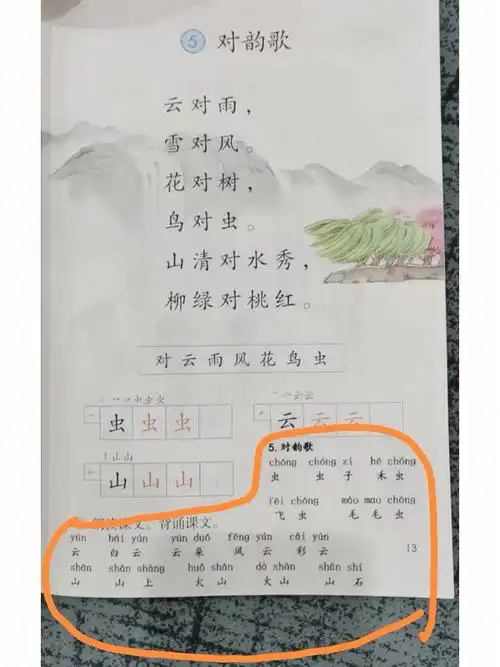 5 对韵歌
云对雨，
雪对风。
花对树，
鸟对虫。
山清对水秀，
柳绿对桃红。
对云雨风花鸟虫
虫虫虫
云云云
山山山
朗读课文。背诵课文。
5. 对韵歌
chóng chóng zi hé chóng
虫 虫子 禾虫
fēi chóng máo mao chóng
飞虫 毛毛虫
yún bái yún yún duǒ fēng yún cǎi yún
云 白云 云朵 风云 彩云
shān shān shàng huǒ shān dà shān shān shí
山 山上 火山 大山 山石
13